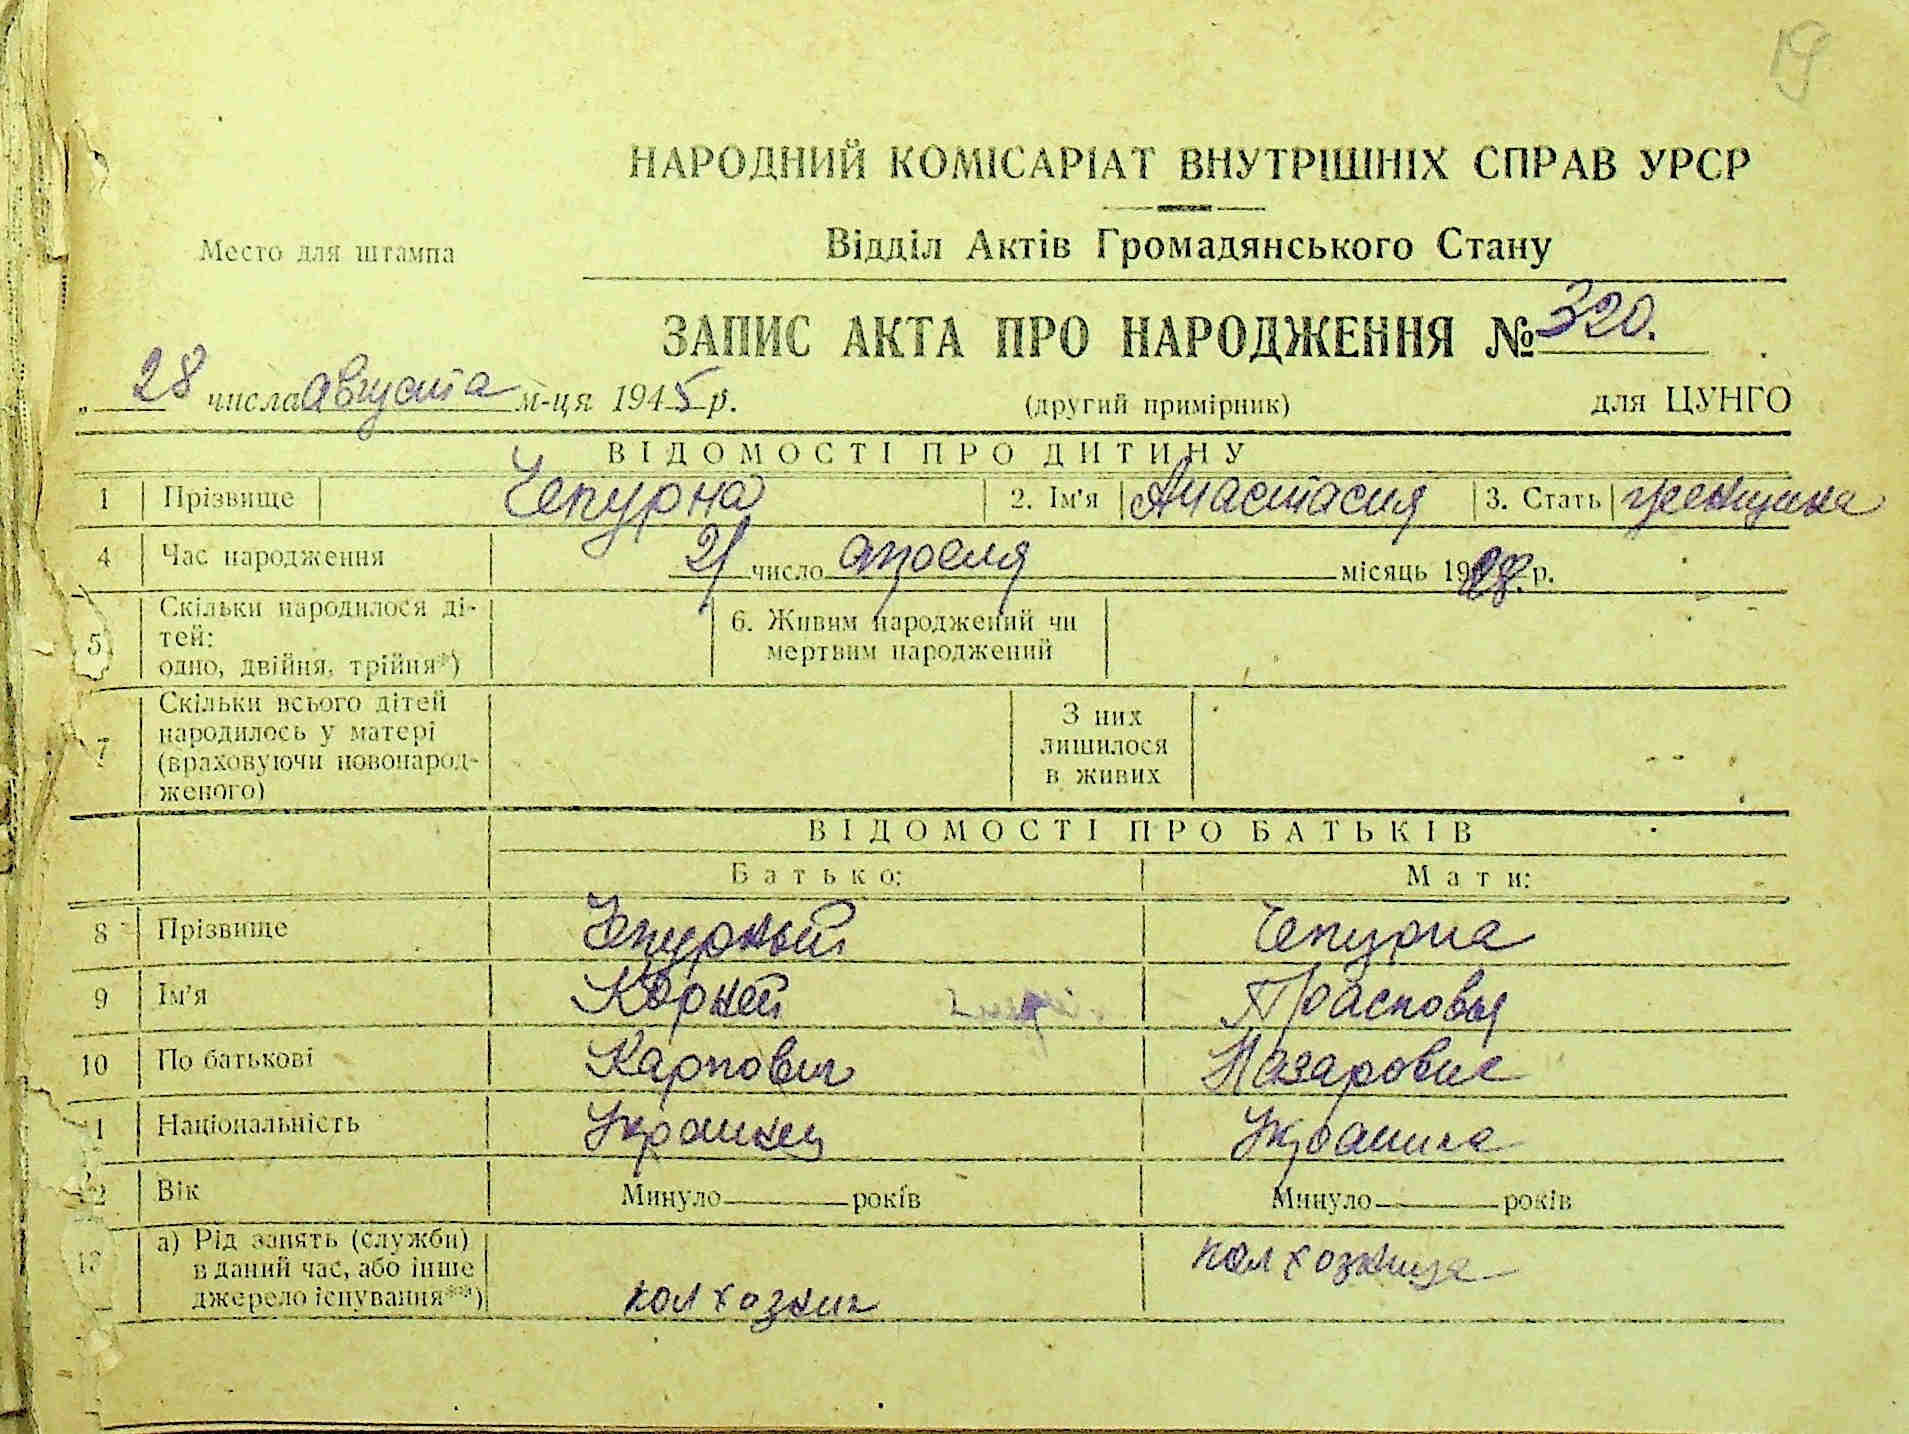 19
НАРОДНИЙ КОМІСАРІАТ ВНУТРІШНІХ СПРАВ УРСР
Место для штампа
Відділ Актів Громадянського Стану
ЗАПИС АКТА ПРО НАРОДЖЕННЯ № 320.
„ 28 числа августа м-ця 1945 р.
(другий примірник)
для ЦУНГО
ВІДОМОСТІ ПРО ДИТИНУ
1 Прізвище Чепурна 2. Ім'я Анастасия 3. Стать женщина
4 Час народження 21 число апреля місяць 1928 р.
5 Скільки народилося ді-
тей:
одно, двійня, трійня*)
6. Живим народжений чи
мертвим народжений
7 Скільки всього дітей
народилось у матері
(враховуючи новонарод-
женого)
З них
лишилося
в живих
ВІДОМОСТІ ПРО БАТЬКІВ
Батько: Мати:
8 Прізвище Чепурный Чепурна
9 Ім'я Корней Прасковья
10 По батькові Карпович Назаровна
11 Національність Украинец Украинка
12 Вік Минуло років Минуло років
13 а) Рід занять (служби)
в даний час, або інше
джерело існування**)
колхозник колхозница